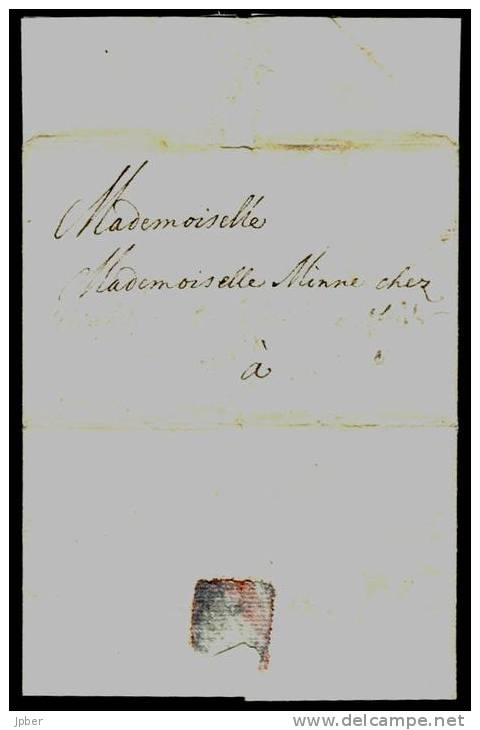 Mademoiselle
Mademoiselle Minne chez
à
jpber
www.delcampe.net